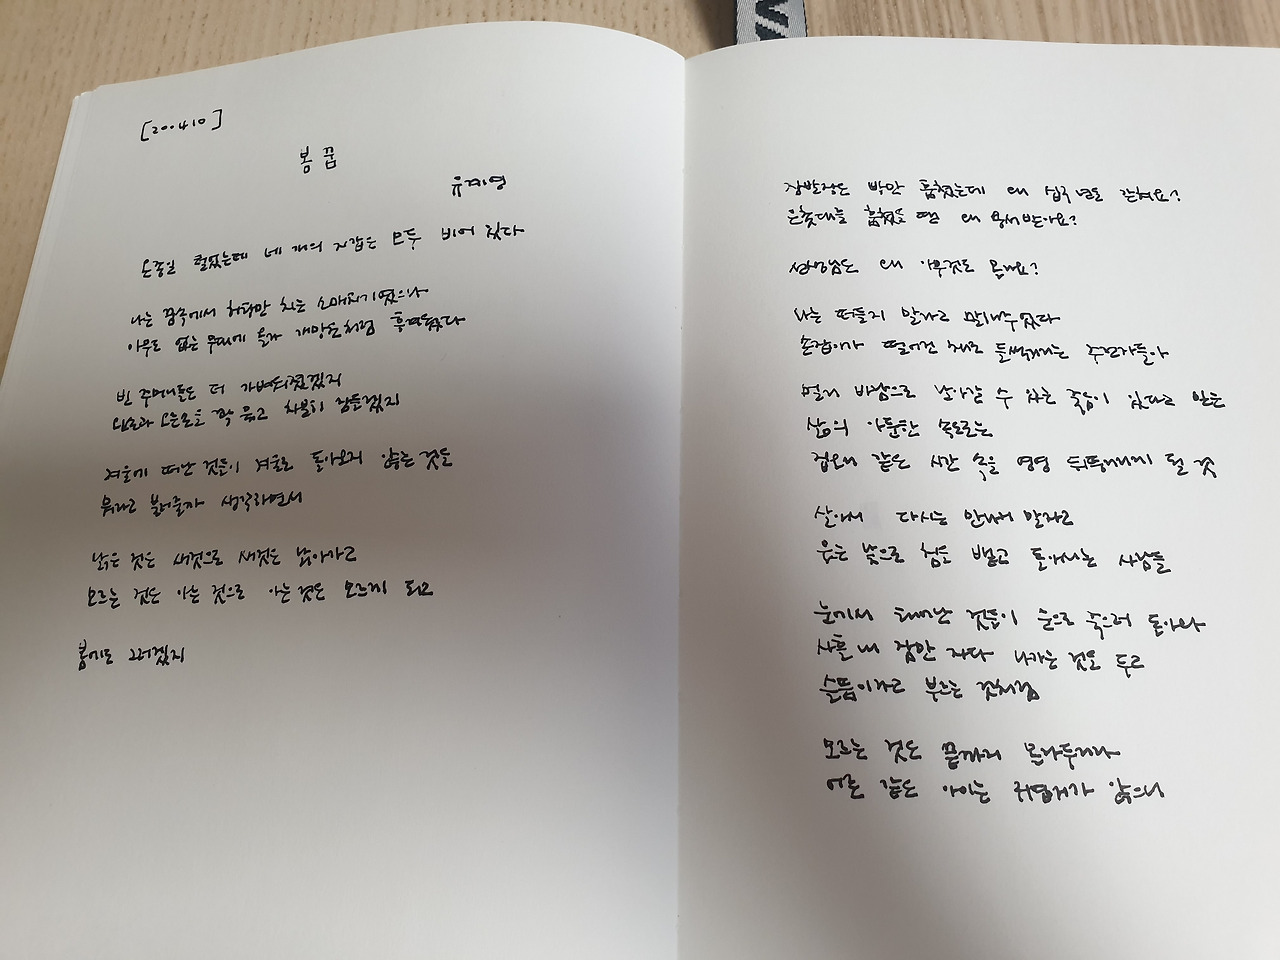 [200410]
봄 꿈
유계영
온종일 훔쳤는데 네 개의 지갑은 모두 비어 있다
나는 꿈속에서 허탕만 치는 소매치기였으나
아무도 없는 무대에 올라 개망초처럼 흔들렸다
빈 주머니들은 더 가벼워졌겠지
왼발과 오른발을 꽉 묶고 차분히 잠들겠지
겨울에 떠난 것들이 겨울로 돌아오지 않는 것을
뭐라고 불러줄까 생각하면서
낡은 것은 새것으로 새것은 낡아가고
모르는 것은 아는 것으로 아는 것은 모르게 되고
봄에도 그러겠지
장발장은 빵만 훔쳤는데 왜 십구 년도 갇혀요?
은촛대를 훔쳤을 땐 왜 용서받아요?
선생님은 왜 아무것도 몰라요?
나는 떠들지 말라고 말해주었다
손잡이가 떨어진 채로 들썩대는 주전자들아
멀리 바깥으로 날아갈 수 있는 죽음이 있다고 믿는
삶의 아둔한 속도로는
점보다 같은 시간 속을 영영 뒤뚱대게 될 것
살아서 다시는 만나지 말자고
웃는 낯으로 침을 뱉고 돌아서는 사람들
눈에서 태어난 것들이 눈으로 죽으러 돌아와
사흘 내 잠만 자다 나가는 것을 두고
슬픔이라고 부르는 것처럼
모르는 것은 끝까지 몰라두거라
어른 같은 아이는 귀엽지가 않으니